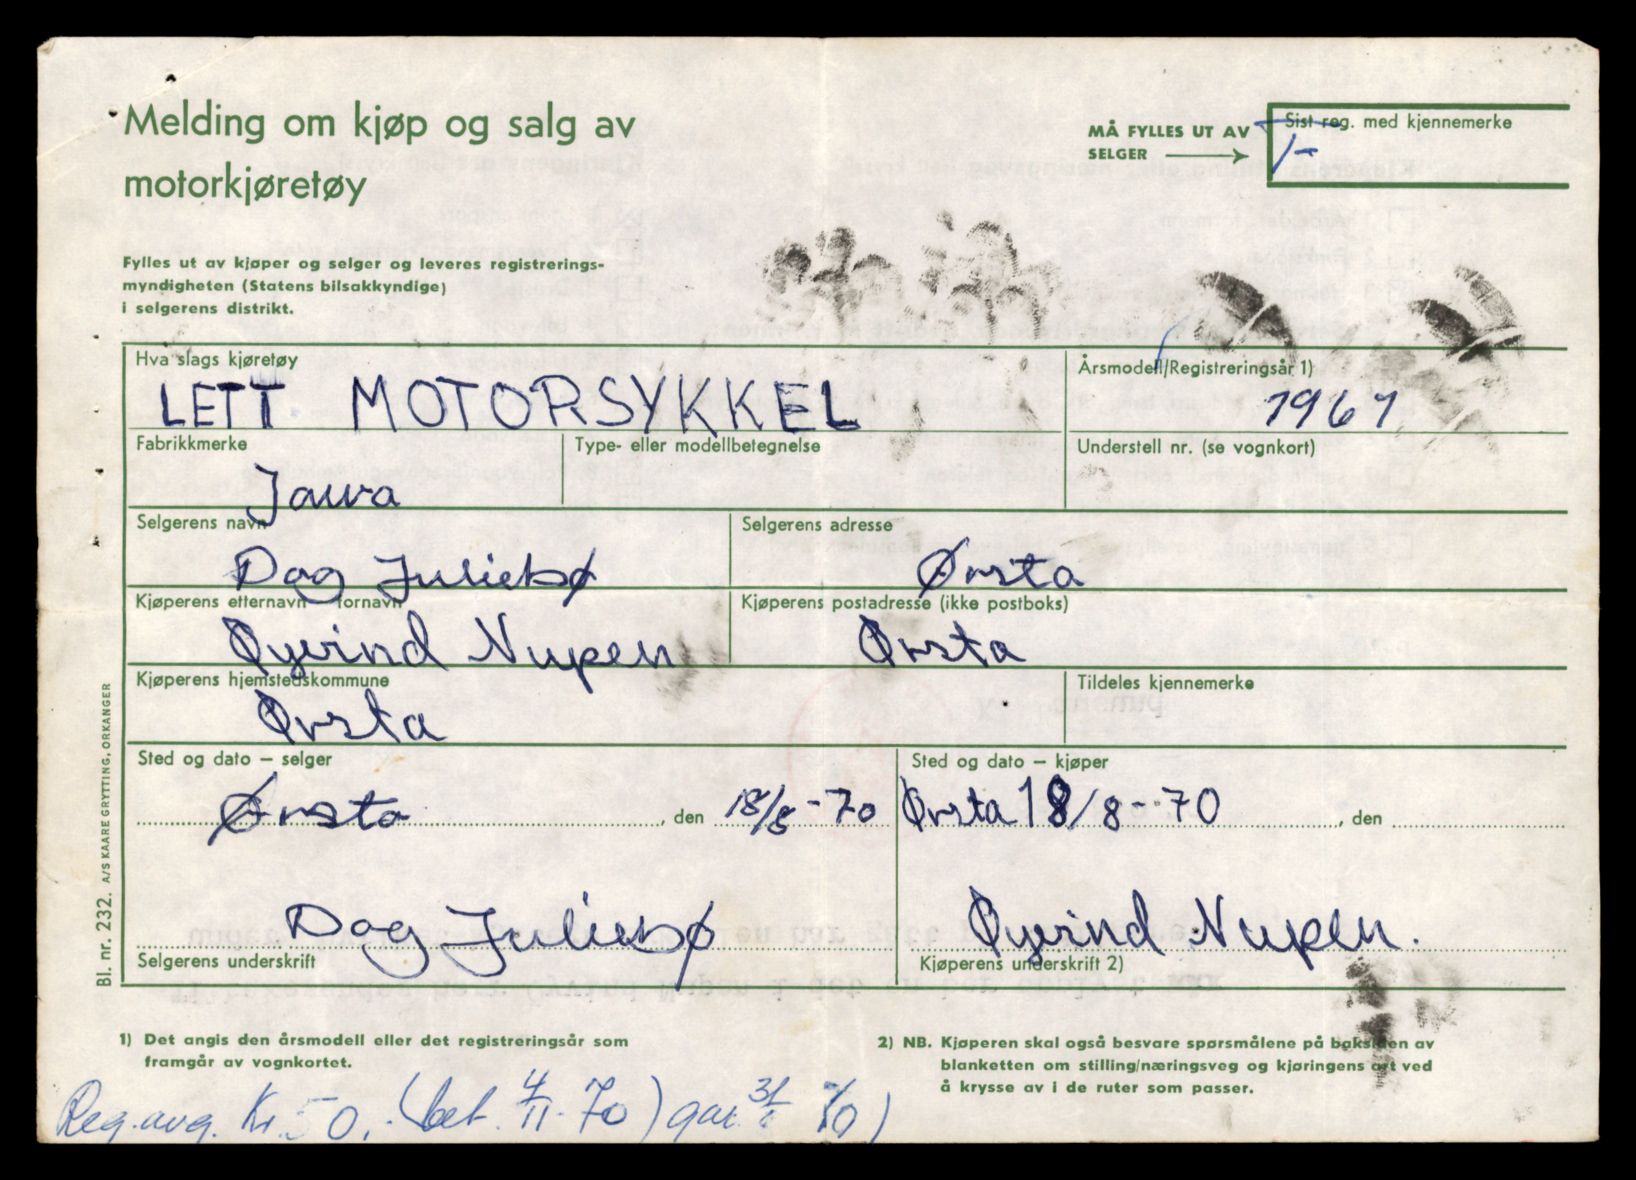 Melding om kjøp og salg av
motorkjøretøy
MÅ FYLLES UT AV
SELGER
Sist reg. med kjennemerke
T-
Fylles ut av kjøper og selger og leveres registrerings-
myndigheten (Statens bilsakkyndige)
i selgerens distrikt.
Hva slags kjøretøy
LETT MOTORSYKKEL
Årsmodell/Registreringsår 1)
1961
Fabrikkmerke
Jawa
Type- eller modellbetegnelse
Understell nr. (se vognkort)
Selgerens navn
Dag Juliebø
Selgerens adresse
Ørsta
Kjøperens etternavn fornavn
Øyvind Nupen
Kjøperens postadresse (ikke postboks)
Ørsta
Kjøperens hjemstedskommune
Ørsta
Tildeles kjennemerke
Sted og dato – selger
Ørsta, den 18/8-70
Sted og dato – kjøper
Ørsta 18/8-70, den
Dag Juliebø
Selgerens underskrift
Øyvind Nupen.
Kjøperens underskrift 2)
Bl. nr. 232. A/S KAARE GRYTTING, ORKANGER
1) Det angis den årsmodell eller det registreringsår som
framgår av vognkortet.
2) NB. Kjøperen skal også besvare spørsmålene på baksiden av
blanketten om stilling/næringsveg og kjøringens art ved
å krysse av i de ruter som passer.
Reg.avg. Kr. 50,- (bet. 4/11-70)